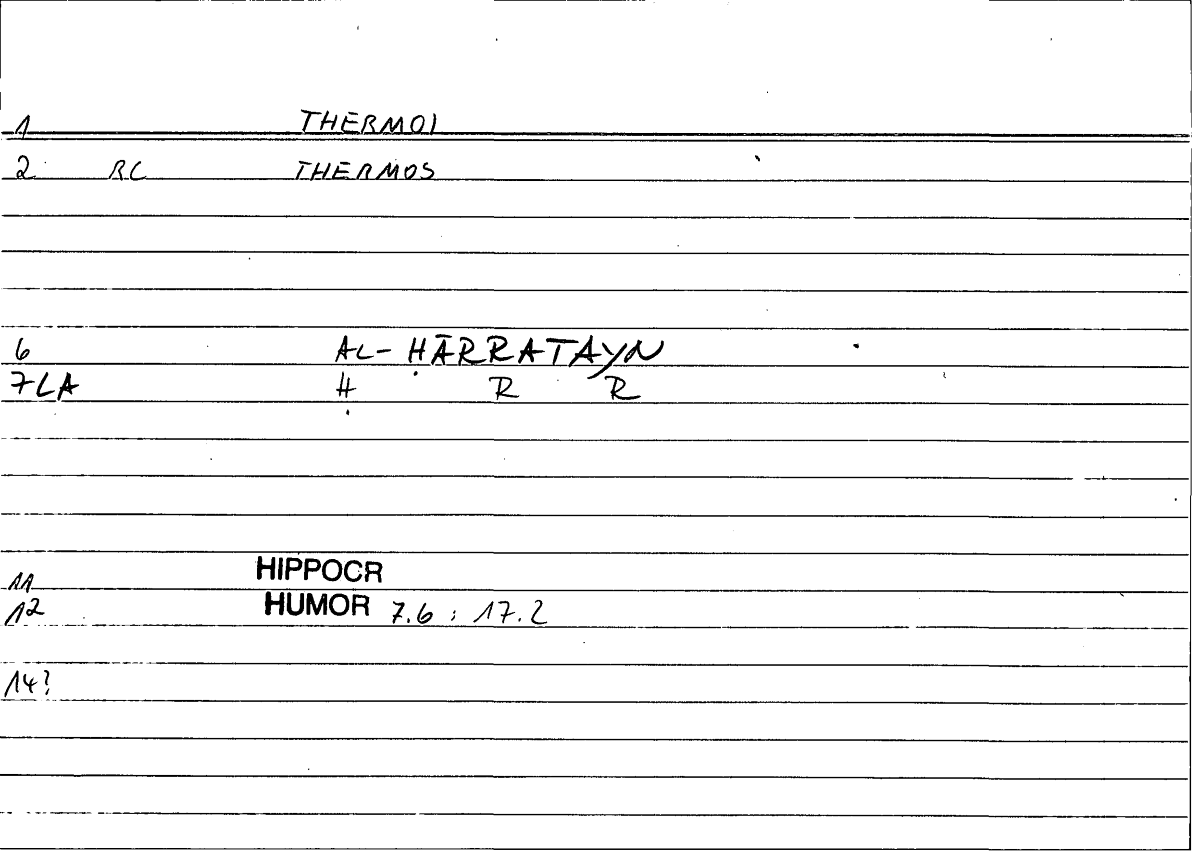 1 THERMOI
2 RC THERMOS
6 AL-ḤĀRRATAYN
7LA Ḥ R R
11 HIPPOCR
12 HUMOR 7.6 ; 17.2
14?